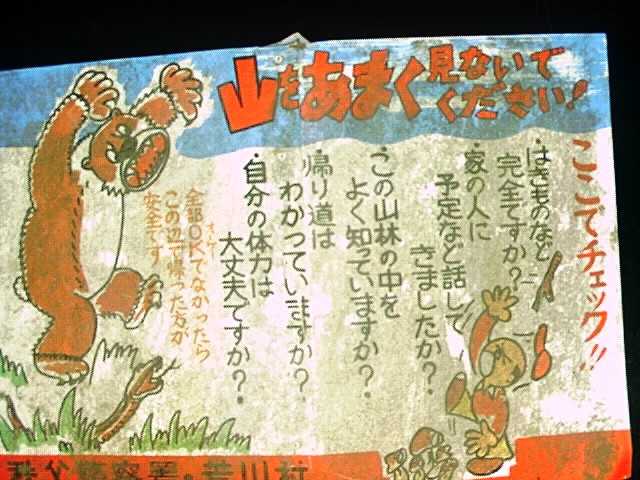 山をあまく見ないで
ください!
ここでチェック!!
・はきものなど
完全ですか?
・家の人に
予定など話して
きましたか?
・この山林の中を
よく知っていますか?
・帰り道は
わかっていますか?
・自分の体力は
大丈夫ですか?
全部OKでなかったら
この辺で帰った方が
安全です
秩父警察署・荒川村